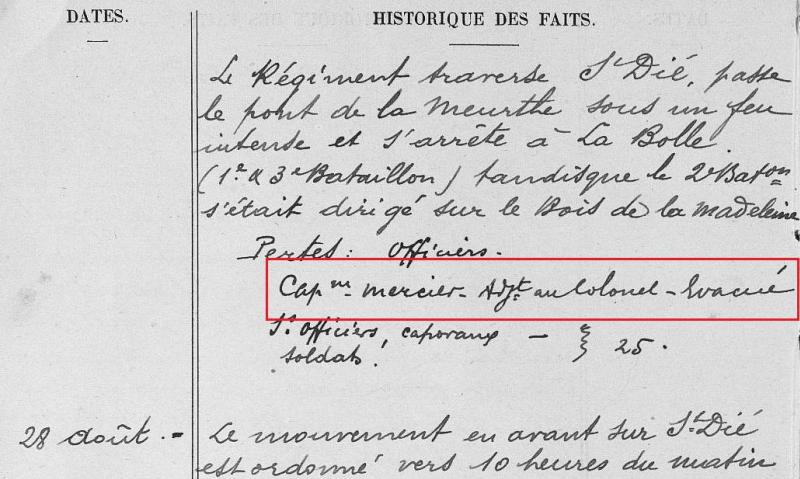 DATES.
HISTORIQUE DES FAITS.
Le Régiment traverse St Dié, passe
le pont de la Meurthe sous un feu
intense et s'arrête à La Bolle.
(1er & 3e Bataillon) tandisque le 2e Baton
s'était dirigé sur le Bois de la Madeleine
Pertes: Officiers.
Capne Mercier - Adjt au Colonel - Evacué
Ss officiers, caporaux - } 25.
soldats:
28 août. - Le mouvement en avant sur St Dié
est ordonné vers 10 heures du matin